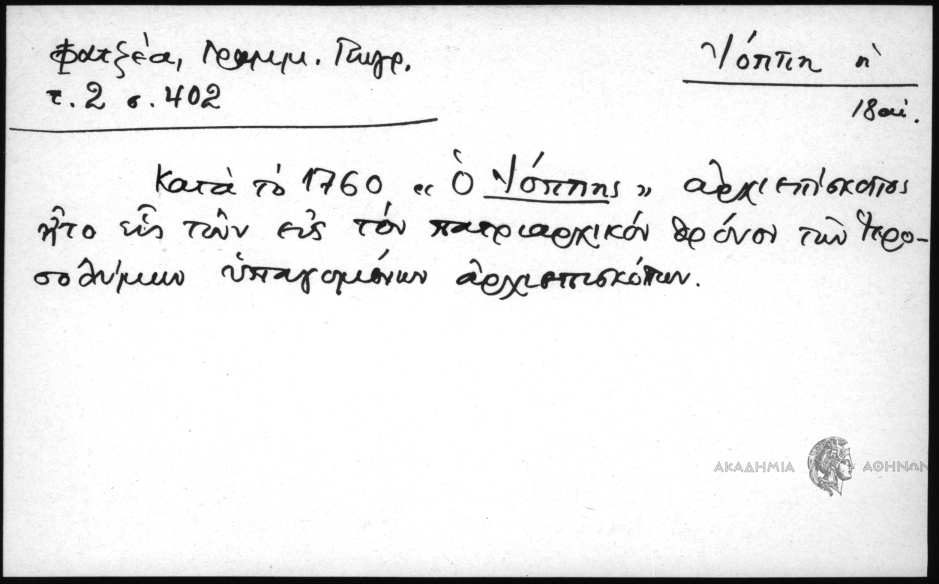 Φατζέα, Γραμμ. Γεωγρ.
τ. 2 σ. 402
Ἰόππη ἡ
18 αἰ.
Κατὰ τὸ 1760 « Ὁ Ἰόππης » ἀρχιεπίσκοπος
ἦτο εἷς τῶν εἰς τὸν πατριαρχικὸν θρόνον τῶν Ἱερο-
σολύμων ὑπαγομένων ἀρχιεπισκόπων.
ΑΚΑΔΗΜΙΑ ΑΘΗΝΩΝ